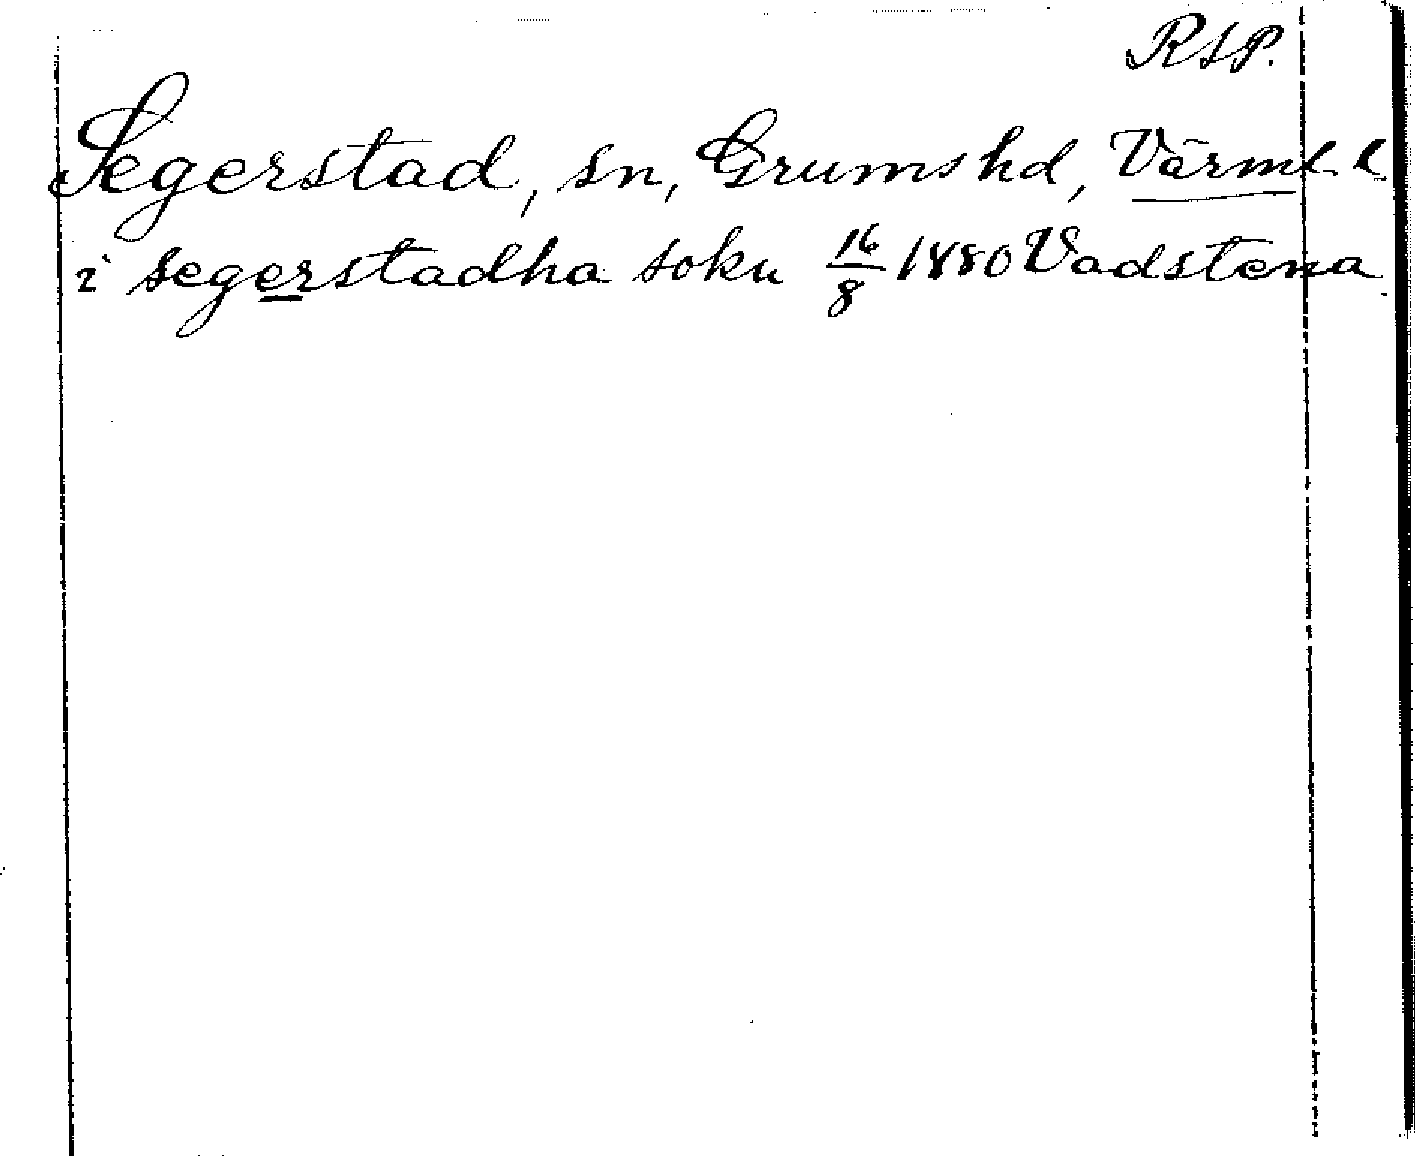 RSP.
Segerstad, sn, Grumshd, Värml. l
i segerstadha soku 16/8 1880 Vadstena